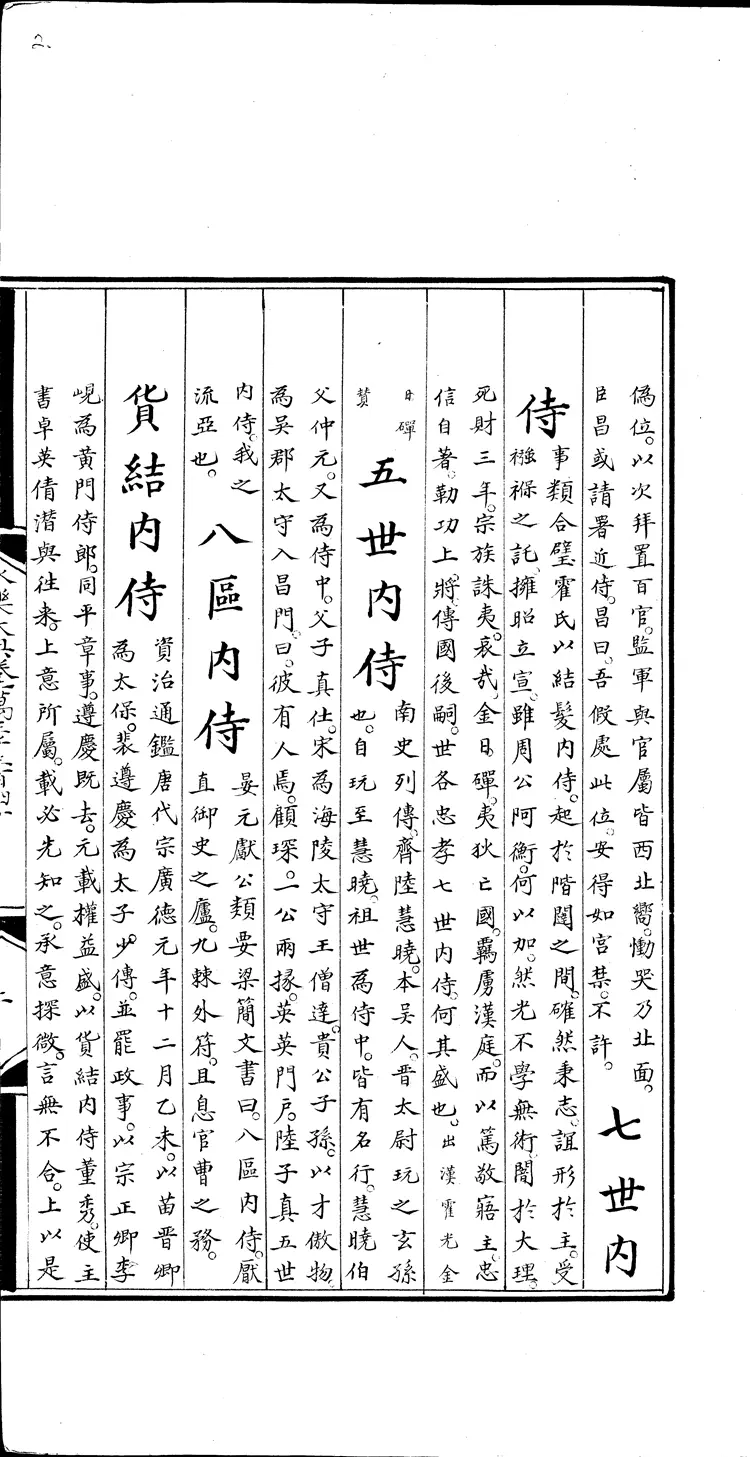 2.
偽位。以次拜置百官。監軍與官屬皆西北嚮。慟哭乃北面。
臣昌或請署近侍。昌曰。吾假處此位。安得如宮禁。不許。
七世内
侍
事類合璧霍氏以結髮内侍。起於階闥之間。確然秉志。誼形於主。受
襁褓之託。擁昭立宣。雖周公阿衡。何以加。然光不學無術。闇於大理。
死財三年。宗族誅夷。哀哉。金日磾。夷狄亡國。羈虜漢庭。而以篤敬寤主。忠
信自著。勒功上將。傳國後嗣。世各忠孝七世内侍。何其盛也。出漢霍光金
日磾
贊
五世内侍
南史列傳。齊陸慧曉。本吳人。晉太尉玩之玄孫
也。自玩至慧曉。祖世為侍中。皆有名行。慧曉伯
父仲元。又為侍中。父子真仕。宋為海陵太守王僧達。貴公子孫。以才傲物。
為吳郡太守入昌門。曰。彼有人焉。顧琛。一公兩掾。英英門戶。陸子真五世
内侍。我之
流亞也。
八區内侍
晏元獻公類要梁簡文書曰。八區内侍。厭
直御史之廬。九棘外符。且息官曹之務。
貨結内侍
資治通鑑唐代宗廣德元年十二月乙未。以苗晉卿
為太保。裴遵慶為太子少傅。並罷政事。以宗正卿李
峴為黃門侍郎。同平章事。遵慶既去。元載權益盛。以貨結内侍董秀。使主
書卓英倩潛與往来。上意所屬。載必先知之。承意探微。言無不合。上以是